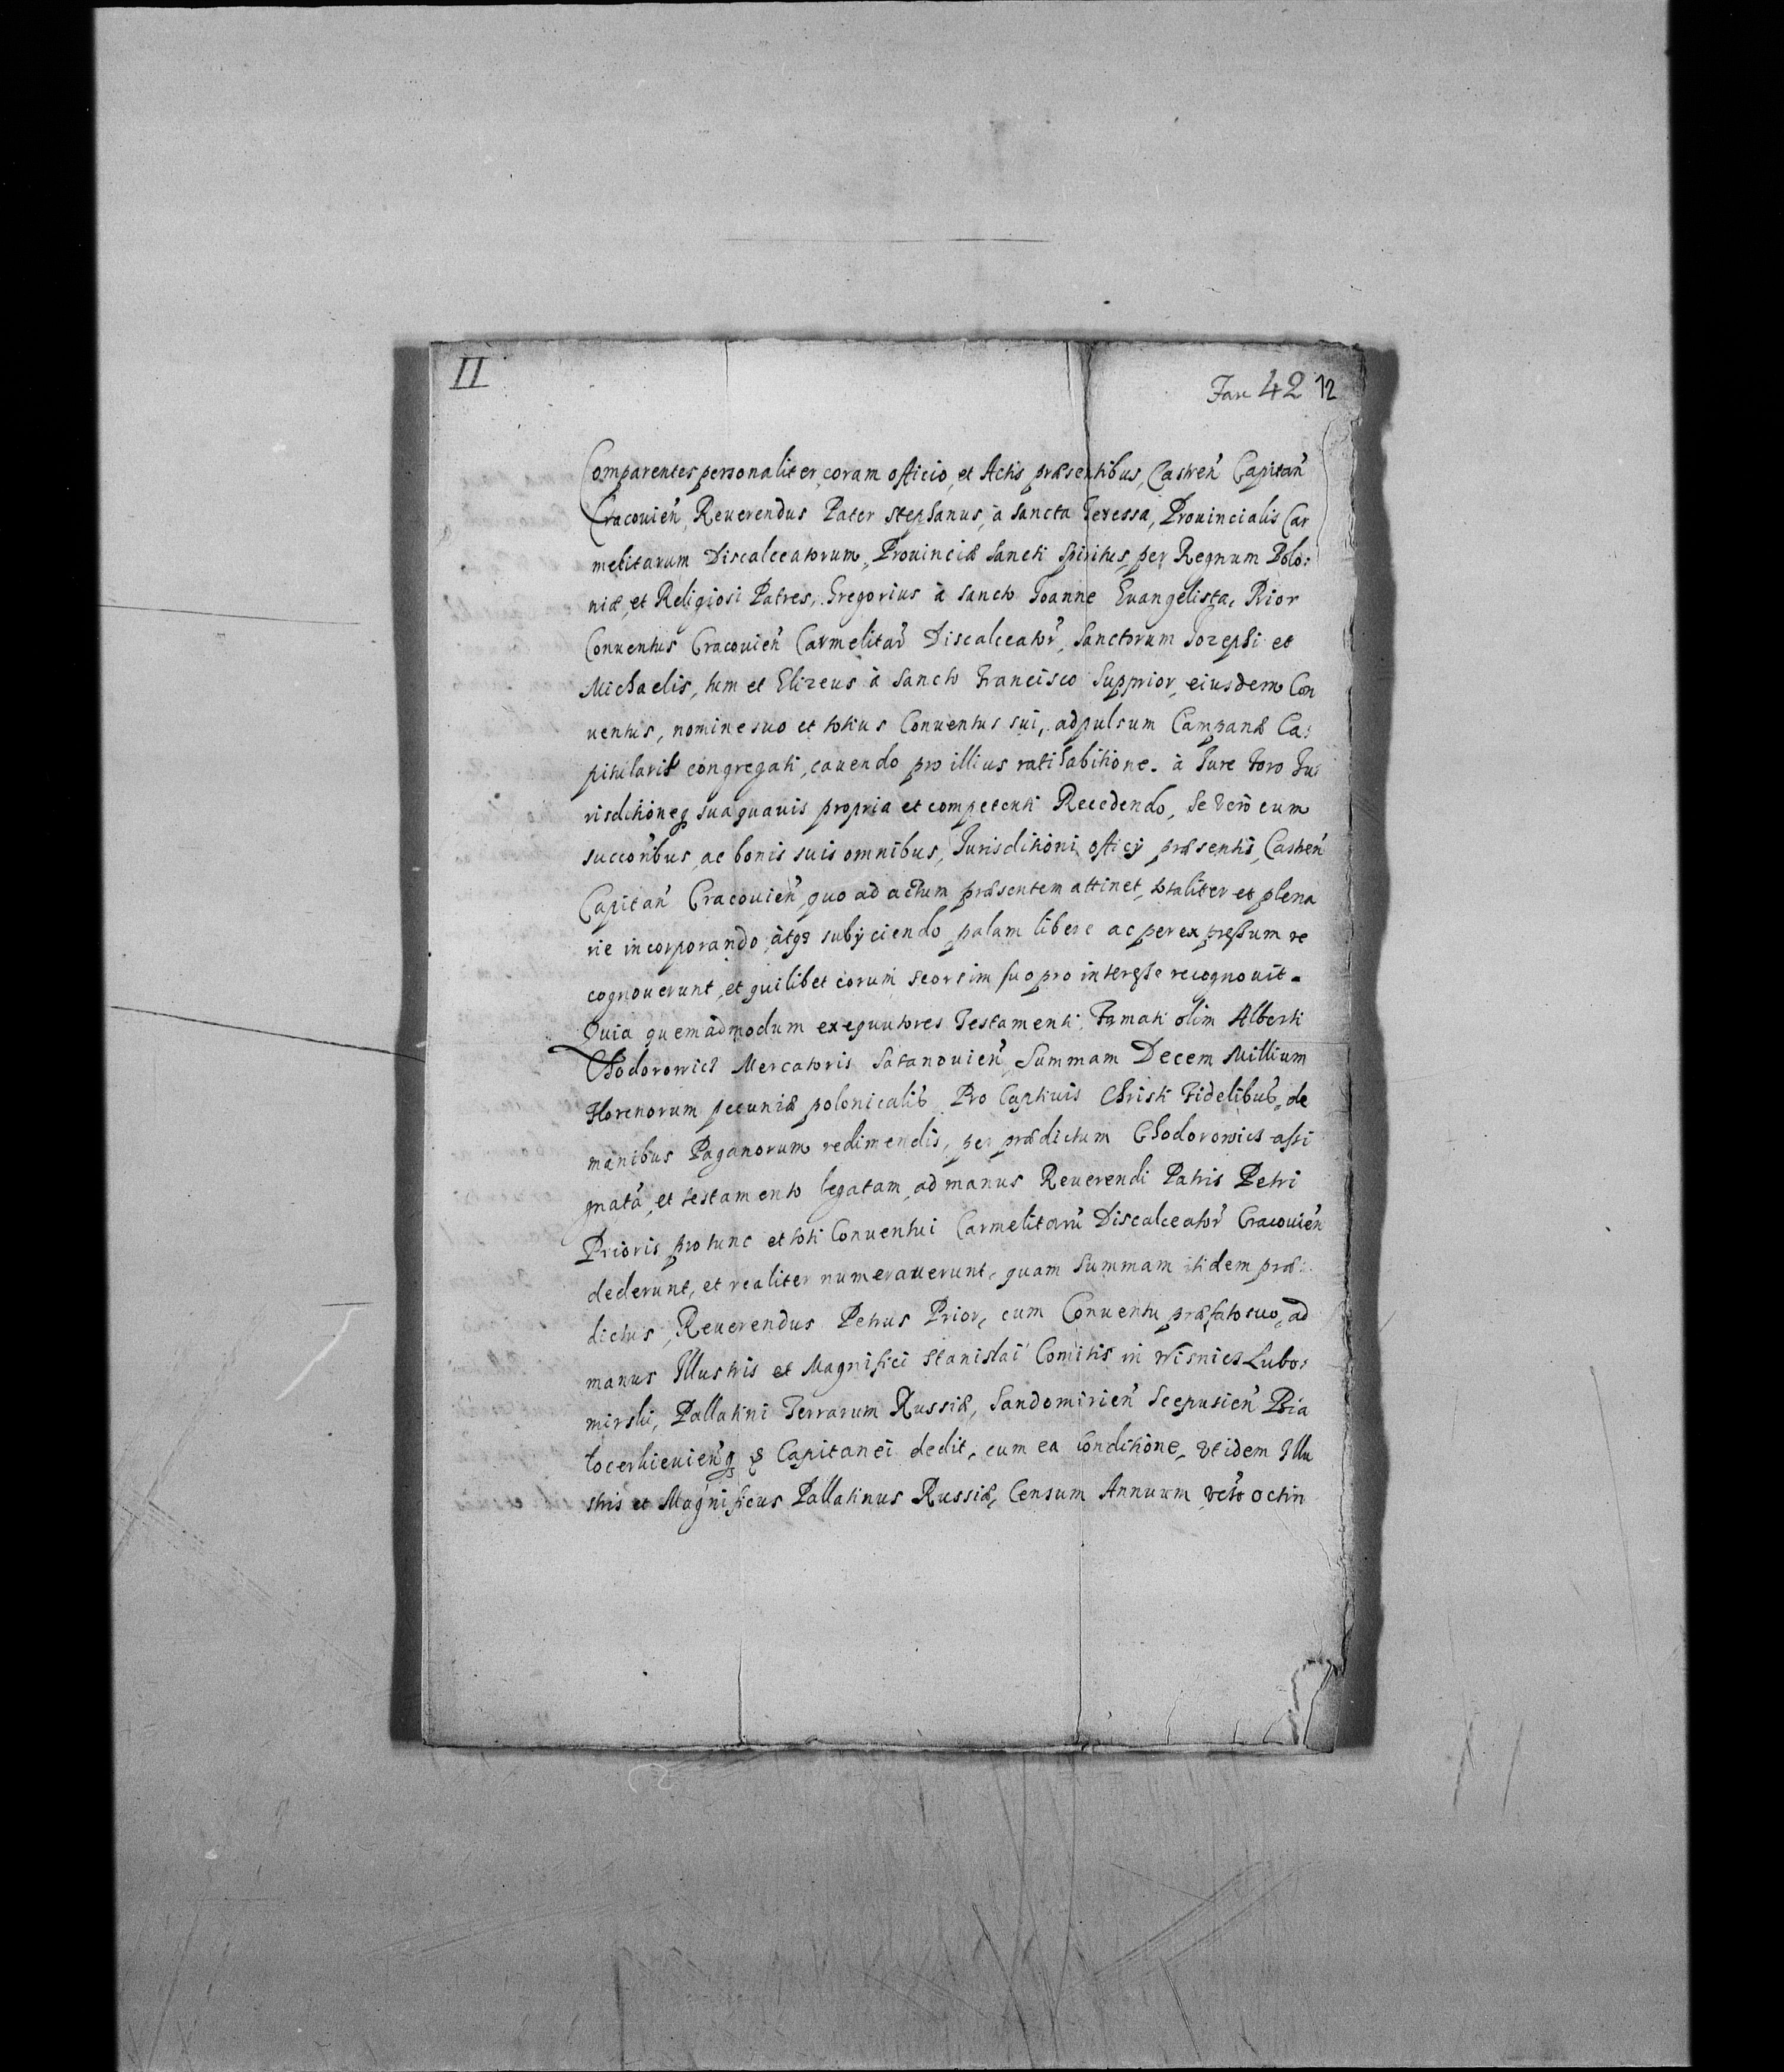 II
Fasc 42 12
Comparentes personaliter, coram officio, et Actis præsentibus, Castren̄ Capitan̄
Cracouien̄, Reuerendus Pater Stephanus, à Sancta Teressa, Prouincialis Car
melitarum Discalceatorum, Prouinciæ Sancti Spiritus, per Regnum Polo:
niæ, et Religiosi Patres, Gregorius à Sancto Joanne Euangelista, Prior
Conuentus Cracouien̄ Carmelitar̄ Discalceator̄, Sanctorum Josephi et
Michaelis, tum et Elizeus à Sancto Francisco Supprior, eiusdem Con
uentus, nomine suo et totius Conuentus sui, ad pulsum Campanæ Ca:
pitularis congregati, cauendo pro illius ratihabitione. à Jure foro Ju:
risditioneq suaquauis propria et competenti Recedendo, se verò cum
succoribus, ac bonis suis omnibus, Jurisditioni officÿ præsentis, Castren̄
Capitan̄ Cracouien̄, quo ad actum præsentem attinet, totaliter et plena
rie incorporando, àtq3 subÿciendo, palam libere ac per expressum re
cognouerunt, et quilibet eorum seorsim suo pro interesse recognouit.
Quia quemadmodum exequutores Testamenti, Famati olim Alberti
Chodorowicz Mercatoris Satanouien̄, Summam Decem Millium
Florenorum pecuniæ polonicalis Pro Captiuis Christi Fidelibus, de
manibus Paganorum redimendis, per prædictum Chodorowicz assi
gnatā, et testamento legatam, ad manus Reuerendi Patris Petri
Prioris pro tunc et toti Conuentui Carmelitarū Discalceator̄ Cracouien̄
dederunt, et realiter numerauerunt, quam Summam itidem præ:
dictus, Reuerendus Petrus Prior, cum Conuentu præfato suo, ad
manus Illustris et Magnifici Stanislai Comitis in Wisnicz Lubo:
mirski, Pallatini Terrarum Russiæ, Sandomirien̄ Scepusien̄ Bia
locerkieuien̄q & Capitanei dedit, cum ea conditione, vt idem Illu
stris et Magnificus Pallatinus Russiæ, Censum Annuum octin